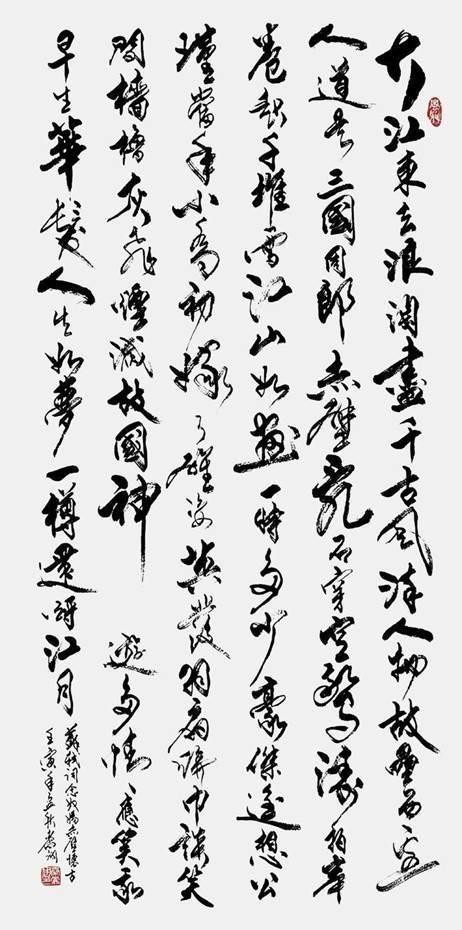 大江東去浪淘盡千古風流人物故壘西邊
人道是三國周郎赤壁亂石穿空驚濤拍岸
卷起千堆雪江山如畫一時多少豪傑遙想公
瑾當年小喬初嫁了雄姿英發羽扇綸巾談笑
間檣櫓灰飛煙滅故國神遊多情應笑我
早生華髮人生如夢一樽還酹江月
蘇軾詞念奴嬌赤壁懷古
壬寅年立秋